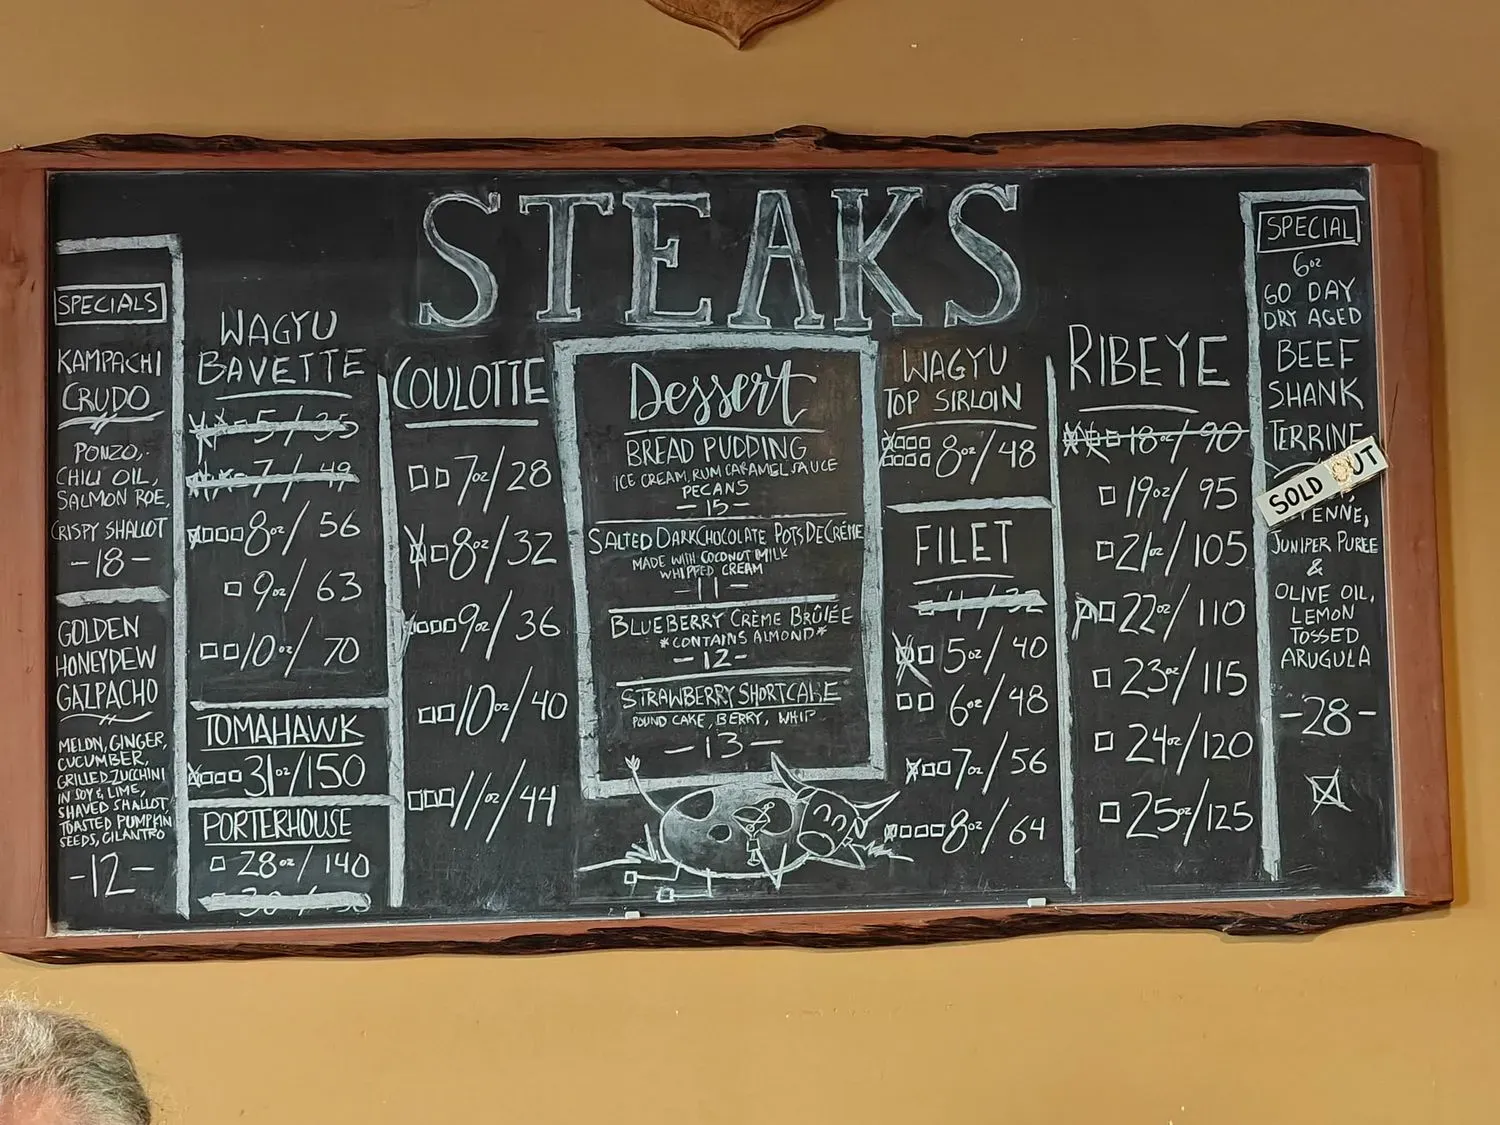 STEAKS
SPECIALS
KAMPACHI
CRUDO
PONZO,
CHILI OIL,
SALMON ROE,
CRISPY SHALLOT
-18-
GOLDEN
HONEYDEW
GAZPACHO
MELON, GINGER,
CUCUMBER,
GRILLED ZUCCHINI
IN SOY & LIME,
SHAVED SHALLOT,
TOASTED PUMPKIN
SEEDS, CILANTRO
-12-
WAGYU
BAVETTE
5/35
7/49
8oz/56
9oz/63
10oz/70
TOMAHAWK
31oz/150
PORTERHOUSE
28oz/140
30/150
COULOTTE
7oz/28
8oz/32
9oz/36
10oz/40
11oz/44
Dessert
BREAD PUDDING
ICE CREAM, RUM CARAMEL SAUCE
PECANS
-15-
SALTED DARK CHOCOLATE POTS DE CRÈME
MADE WITH COCONUT MILK
WHIPPED CREAM
-11-
BLUEBERRY CRÈME BRÛLÉE
*CONTAINS ALMOND*
-12-
STRAWBERRY SHORTCAKE
POUND CAKE, BERRY, WHIP
-13-
WAGYU
TOP SIRLOIN
8oz/48
FILET
4/32
5oz/40
6oz/48
7oz/56
8oz/64
RIBEYE
18oz/90
19oz/95
21oz/105
22oz/110
23oz/115
24oz/120
25oz/125
SPECIAL
6oz
60 DAY
DRY AGED
BEEF
SHANK
TERRINE
SOLD OUT
JUNIPER PUREE
&
OLIVE OIL,
LEMON
TOSSED
ARUGULA
-28-